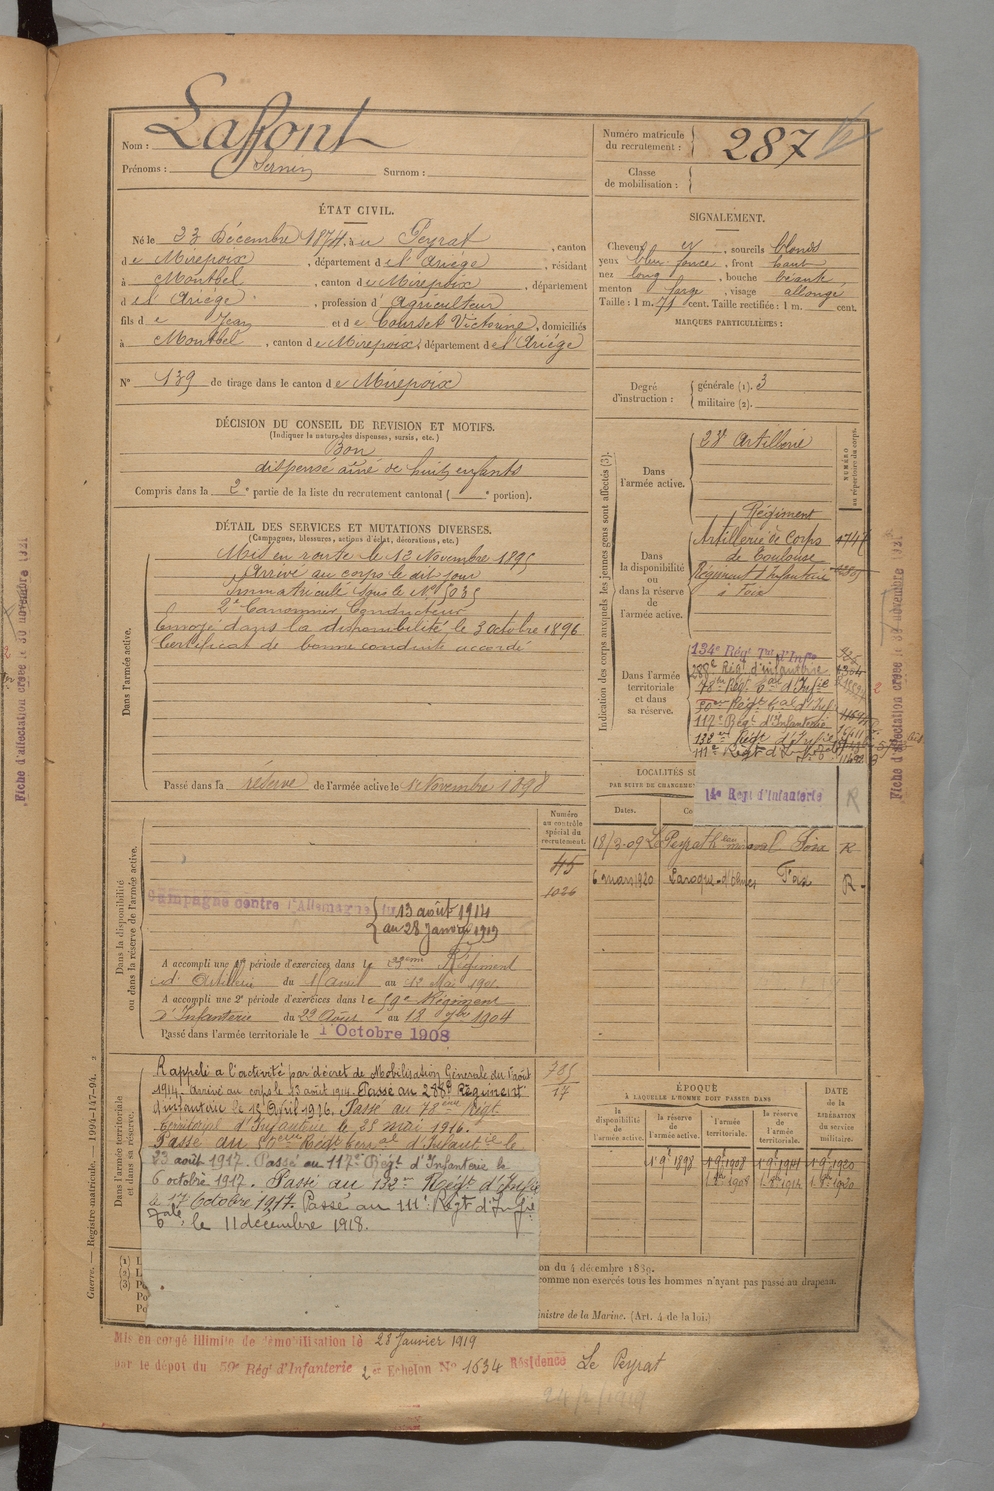 Nom : Laffont
Prénoms : Sernin Surnom :
Numéro matricule du recrutement : 287
Classe de mobilisation :
ÉTAT CIVIL.
Né le 23 Décembre 1874, au Peyrat, canton
de Mirepoix, département de l'Ariège, résidant
à Montbel, canton de Mirepoix, département
de l'Ariège, profession d'Agriculteur
fils de Jean et de Courset Victorine, domiciliés
à Montbel, canton de Mirepoix, département de l'Ariège
N° 139 de tirage dans le canton de Mirepoix
SIGNALEMENT.
Cheveux et, sourcils blonds
yeux bleu foncé, front haut
nez long, bouche béante,
menton large, visage allongé
Taille : 1 m. 71 cent. Taille rectifiée : 1 m. cent.
MARQUES PARTICULIÈRES :
Degré d'instruction : générale (1). 3
militaire (2).
DÉCISION DU CONSEIL DE REVISION ET MOTIFS.
(Indiquer la nature des dispenses, sursis, etc.)
Bon
dispensé aîné de huit enfants
Compris dans la 2e partie de la liste du recrutement cantonal ( e portion).
DÉTAIL DES SERVICES ET MUTATIONS DIVERSES.
(Campagnes, blessures, actions d'éclat, décorations, etc.)
Dans l'armée active.
Mis en route le 13 Novembre 1895
Arrivé au corps le dit jour
Immatriculé sous le N° 5035
2e Canonnier Conducteur
Envoyé dans la disponibilité le 3 octobre 1896
Certificat de bonne conduite accordé
Passé dans la réserve de l'armée active le 1er Novembre 1898
Indication des corps auxquels les jeunes gens sont affectés (3).
NUMÉRO au répertoire du corps.
Dans l'armée active.
23e Artillerie
Dans la disponibilité ou dans la réserve de l'armée active.
Régiment
Artillerie de Corps 4747
de Toulouse
Régiment d'Infanterie
à Foix
Dans l'armée territoriale et dans sa réserve.
134e Régt Tal d'Infie
288e Régt d'infanterie
78eme Régt Tal d'Infie
117e Régt d'Infanterie
132e Régt d'Infie
111e Régt d'Infie
14e Régt d'Infanterie R
Numéro au contrôle spécial du recrutement.
45
1026
Dans la disponibilité ou dans la réserve de l'armée active.
Campagne contre l'Allemagne du 13 août 1914
au 28 Janvier 1919
A accompli une 1re période d'exercices dans le 23eme Régiment
d'Artillerie du 15 Avril au 12 Mai 1901
A accompli une 2e période d'exercices dans le 59e Régiment
d'Infanterie du 22 Août au 18 7bre 1904
Passé dans l'armée territoriale le 1er Octobre 1908
LOCALITÉS
PAR SUITE DE CHANGEMEN
Dates.
18/3-09 Le Peyrat Foix R
6 mars 1920 Laroque-d'Olmes Foix R
Dans l'armée territoriale et dans sa réserve.
Rappelé à l'activité par décret de Mobilisation Générale du 1er août
1914. Arrivé au corps le 13 août 1914. Passé au 288e Régiment
d'infanterie le 15 Avril 1916. Passé au 78eme Régt
territorial d'Infanterie le 25 mai 1916.
Passé au 50eme Régt Terral d'Infantie le
23 août 1917. Passé au 117e Régt d'Infanterie le
6 octobre 1917. Passé au 132e Régt d'Infie
le 17 Octobre 1917. Passé au 111e Régt d'Infie
Tale, le 11 décembre 1918.
785
17
ÉPOQUE
À LAQUELLE L'HOMME DOIT PASSER DANS
la disponibilité de l'armée active.
la réserve de l'armée active.
l'armée territoriale.
la réserve de l'armée territoriale.
DATE de la LIBÉRATION du service militaire.
1er 9e 1898 1er 9e 1908 1er 9e 1914 1er 9e 1920
1er 8e 1908 1er 8e 1914 1er 8e 1920
on du 4 décembre 1889.
comme non exercés tous les hommes n'ayant pas passé au drapeau.
inistre de la Marine. (Art. 4 de la loi.)
Mis en congé illimité de démobilisation le 28 Janvier 1919
par le dépôt du 59e Rég' d'Infanterie 2 er Echelon N° 1634 Résidence Le Peyrat
Guerre. — Registre matricule. — 1994-147-94.
Fiche d'affectation créée le 30 novembre 1921
Fiche d'affectation créée le 30 novembre 1921